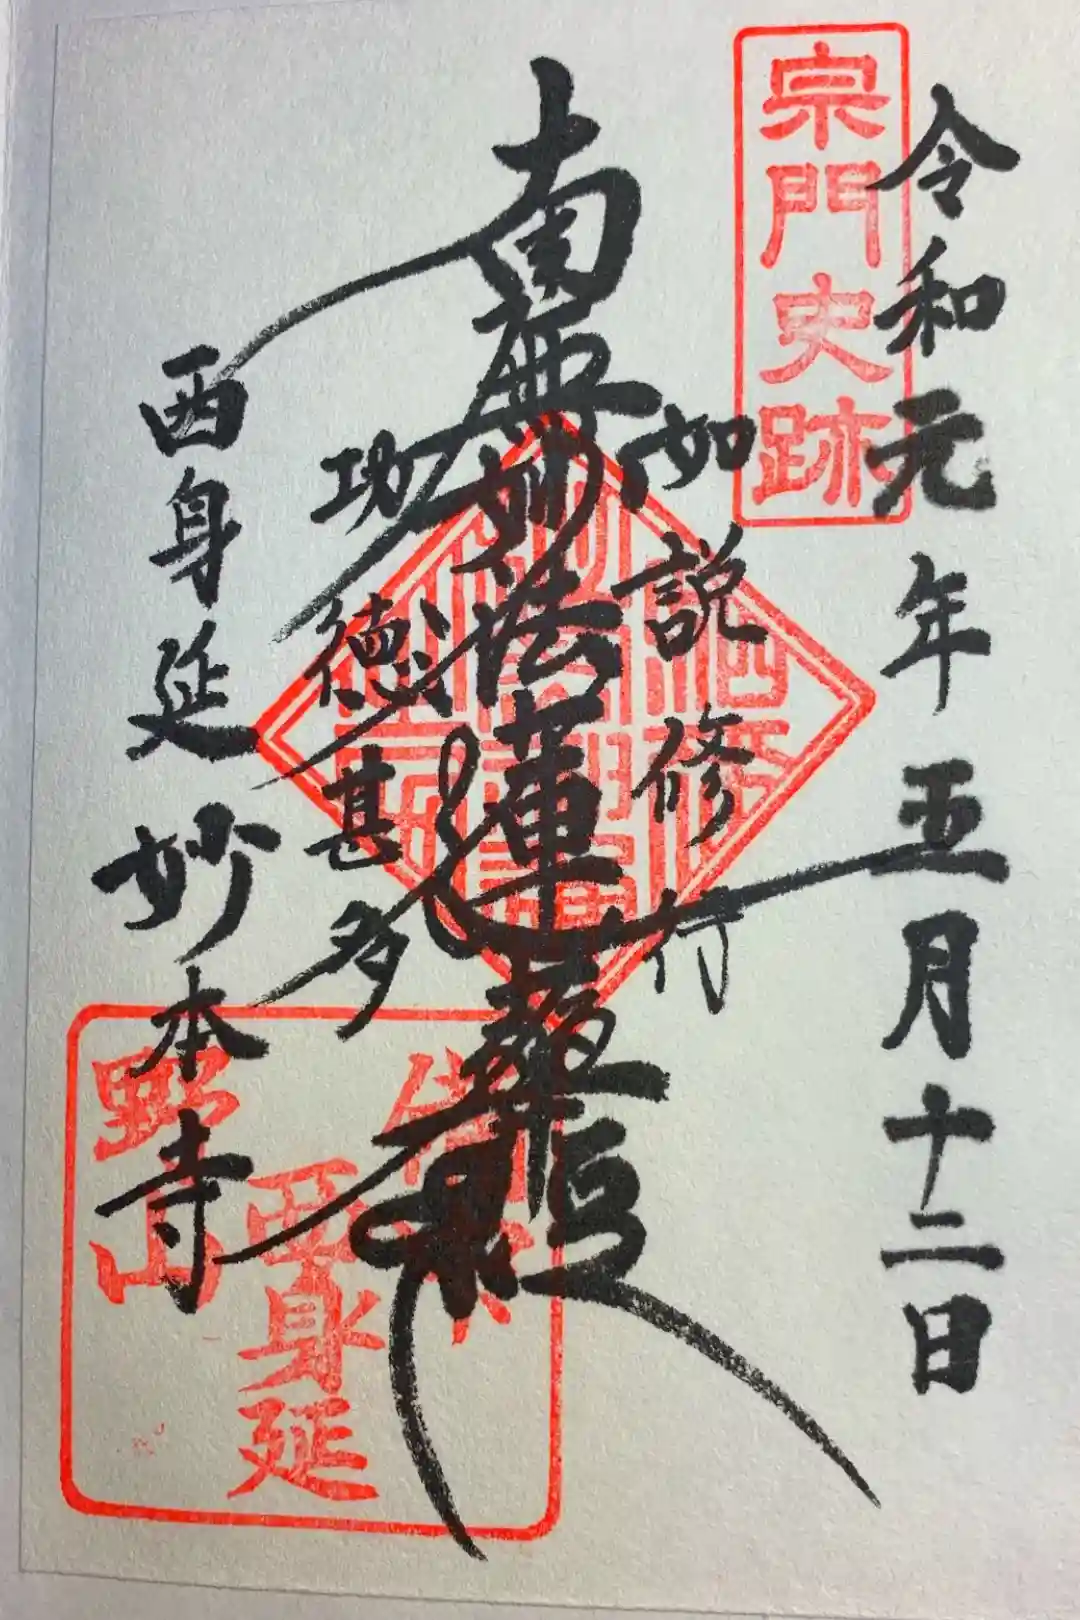 宗門史跡
令和元年五月十二日
如説修行
南無妙法蓮華経
功徳甚多
西身延
妙本寺
西身延
野山